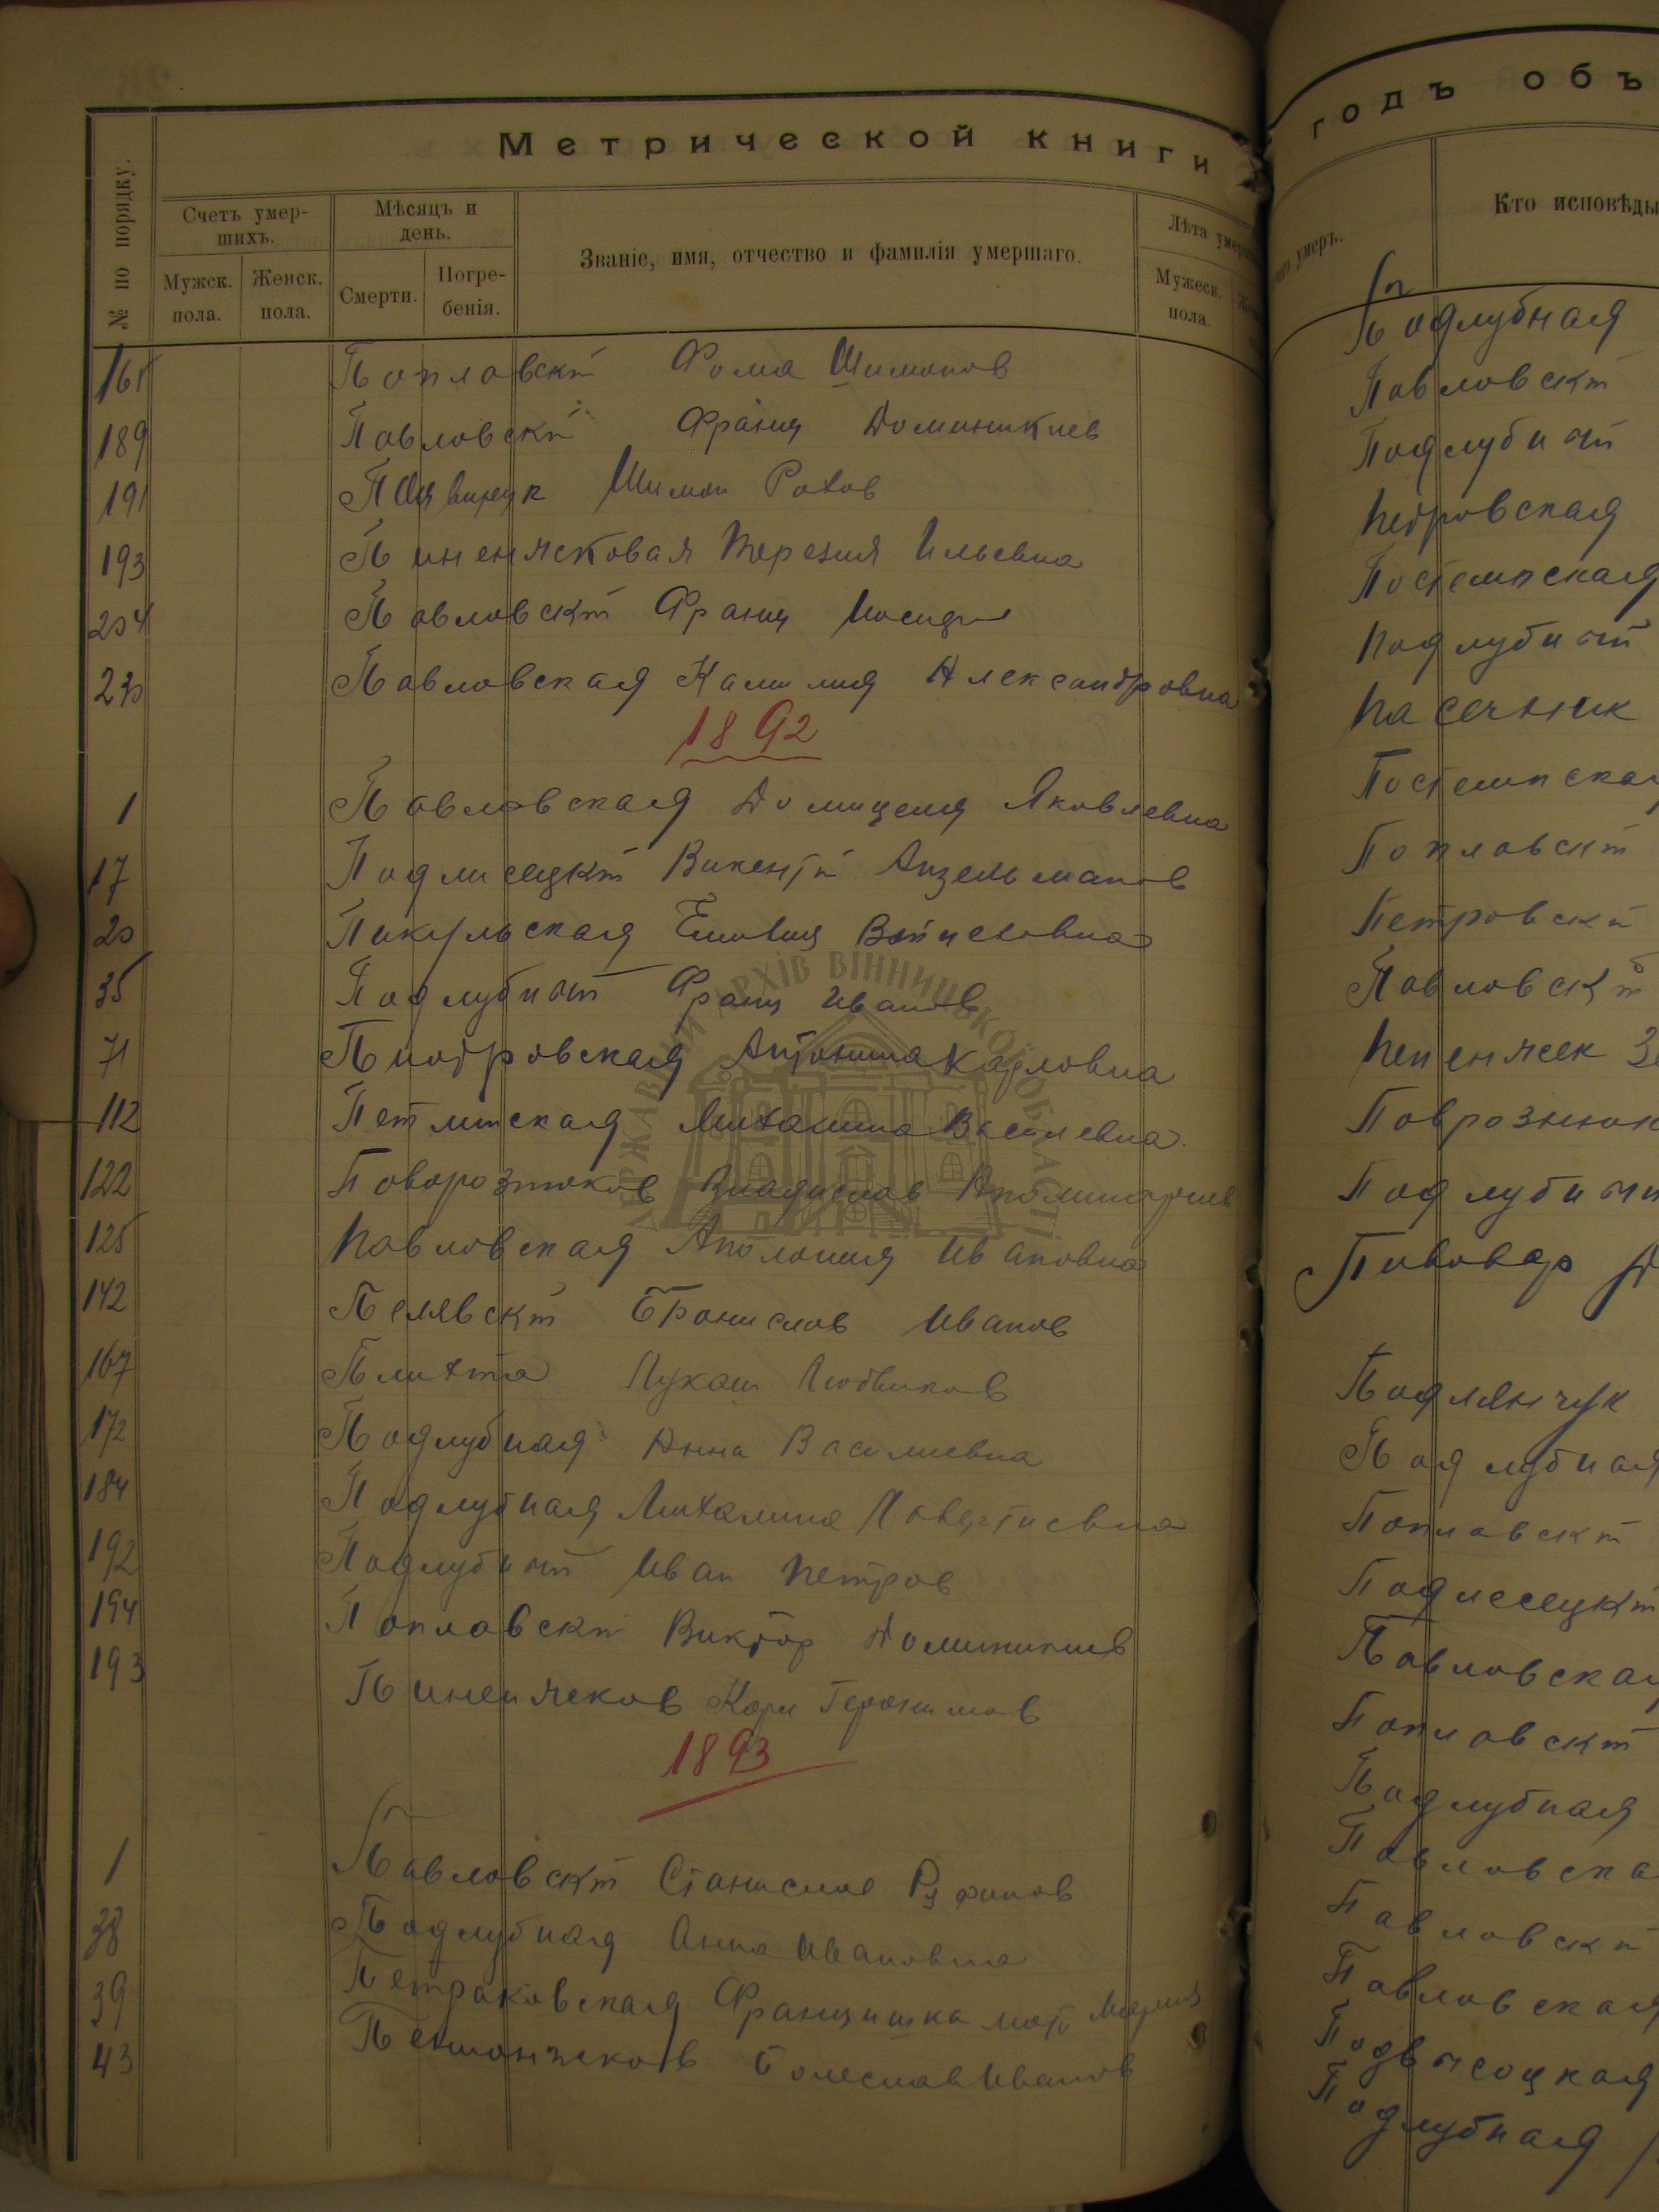 Метрической книги
№ по порядку.
Счетъ умер-
шихъ.
Мужск.
пола.
Женск.
пола.
Мѣсяцъ и
день.
Смерти.
Погре-
бенія.
Званіе, имя, отчество и фамилія умершаго.
Лѣта
Мужеск.
пола.
161 Поплавскій Фома Шимонов
189 Павловскій Франц Доминикиев
191 Шимон Рохов
193 Терезия Ильевна
204 Павловскій Франц
230 Павловская Камилия Александровна
1892
1 Павловская Домицеля Яковлевна
17 Подлисецкій Викентій Анзельманов
20 Пикульская
35 Подлубный Франц Иванов
71 Пиотровская Антонина Карловна
112 Петлинская Михалина Василевна
122 Поворознюков Владислав Аполинариев
125 Павловская Аполония Ивановна
142 Пелявскій Бронислав Иванов
167 Плихта Лукаш Людвиков
172 Подлубная Анна Василиевна
184 Подлубная Михалина
192 Подлубный Иван Петров
194 Поплавскій Виктор Доминикиев
193 Пиненжсков Карл Геронимов
1893
П
1 Павловскій Станислав Руфинов
38 Подлубная Анна Ивановна
39 Петраковская Францишка мать Мария
43 Болеслав Иванов
годъ объ
умеръ.
Кто исповѣды
П
Подлубная
Павловскій
Подлубный
Петровская
Постемпская
Подлубный
Пасечник
Постемпская
Поплавскій
Петровскій
Павловскій
Пененжек
Поврознюк
Подлубный
Пивовар
Подлянчук
Подлубная
Поплавскій
Подлесецкій
Павловская
Поплавскій
Подлубная
Павловска
Павловскій
Павловская
Подвысоцкая
Подлубная